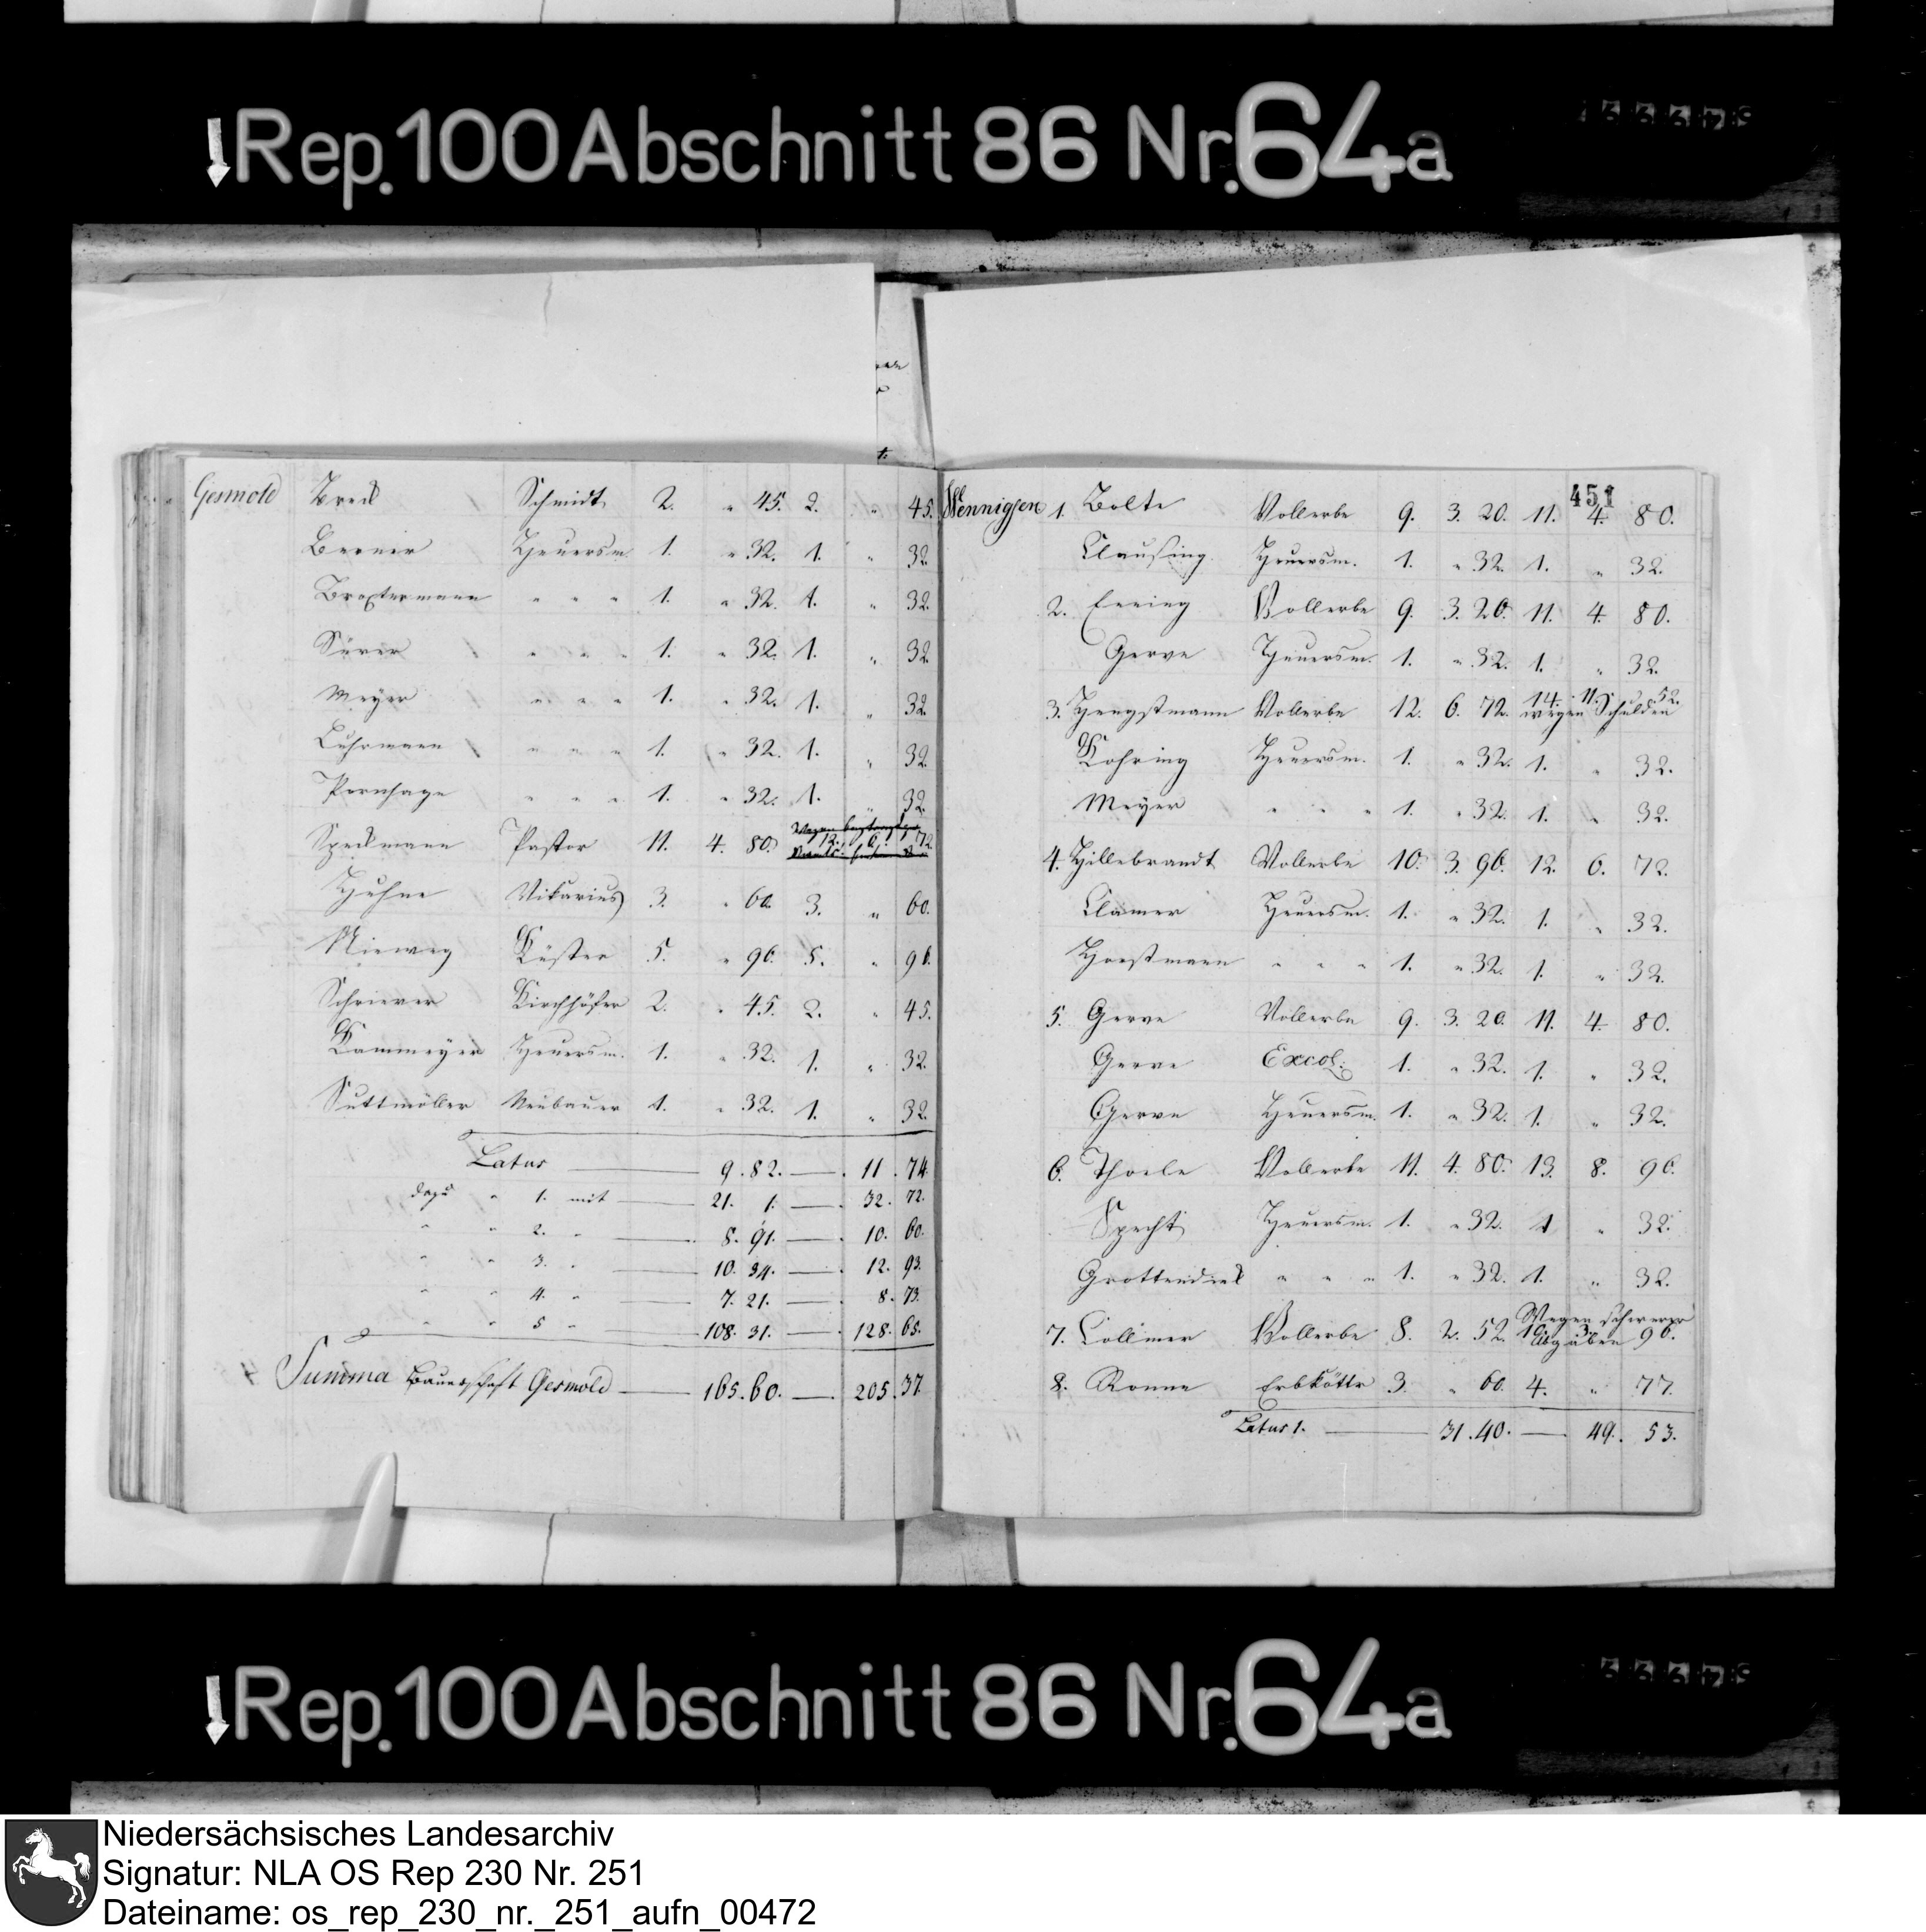 Rep. 100 Abschnitt 86 Nr. 64a
451
Gesmold Breck Schmidt 2. " 45. 2. " 45.
Berner Heuersm. 1. " 32. 1. " 32.
Broxtermann " " " 1. " 32. 1. " 32.
Sürer " " " 1. " 32. 1. " 32.
Meyer " " " 1. " 32. 1. " 32.
Luhrmann " " " 1. " 32. 1. " 32.
" " " 1. " 32. 1. " 32.
Speckmann Pastor 11. 4. 80. 12. 6. 72.
Huhne Vikarius 3. " 60. 3. " 60.
Nieweg Küster 5. " 96. 5. " 96.
Schriever Kirchhöfer 2. " 45. 2. " 45.
Kammeyer Heuersm. 1. " 32. 1. " 32.
Suttmöller Neubauer 1. " 32. 1. " 32.
Latus 9. 82. 11. 74.
dazu " 1. mit 21. 1. 32. 72.
" " 2. " 8. 91. 10. 60.
" " 3. " 10. 34. 12. 93.
" " 4. " 7. 21. 8. 73.
" " 5 " 108. 31. 128. 65.
Summa Bauerschaft Gesmold 165. 60. 205. 37.
Wennigsen 1. Bolte Vollerbe 9. 3. 20. 11. 4. 80.
Claußing Heuersm. 1. " 32. 1. " 32.
2. Vollerbe 9. 3. 20. 11. 4. 80.
Gerve Heuersm. 1. " 32. 1. " 32.
3. Hengstmann Vollerbe 12. 6. 72. 14. 11. 52.
wegen Schulden
Kohring Heuersm. 1. " 32. 1. " 32.
Meyer " " " 1. " 32. 1. " 32.
4. Hillebrandt Vollerbe 10. 3. 96. 12. 6. 72.
Clamer Heuersm. 1. " 32. 1. " 32.
Horstmann " " " 1. " 32. 1. " 32.
5. Gerve Vollerbe 9. 3. 20. 11. 4. 80.
Gerve Excol. 1. " 32. 1. " 32.
Gerve Heuersm. 1. " 32. 1. " 32.
6. Thoele Vollerbe 11. 4. 80. 13. 8. 96.
Specht Heuersm. 1. " 32. 1 " 32.
Grottendieck " " " 1. " 32. 1. " 32.
Wegen schwerer
7. Collmer Vollerbe 8. 2. 52. 10. 3. 96.
Abgaben
8. Ronne Erbkötter 3. " 60. 4. " 77.
Latus 1. 31. 40. 49. 53.
Rep. 100 Abschnitt 86 Nr. 64a
Niedersächsisches Landesarchiv
Signatur: NLA OS Rep 230 Nr. 251
Dateiname: os_rep_230_nr._251_aufn_00472